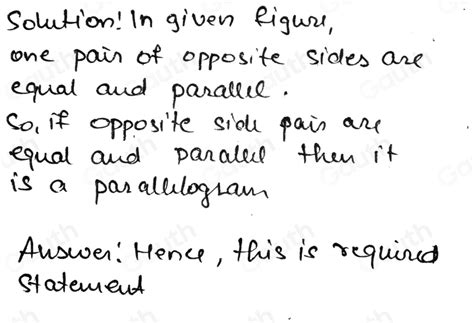 Solution! In given figure,
one pair of opposite sides are
equal and parallel.
So, if opposite side pair are
equal and parallel then it
is a parallelogram
Answer: Hence, this is required
statement